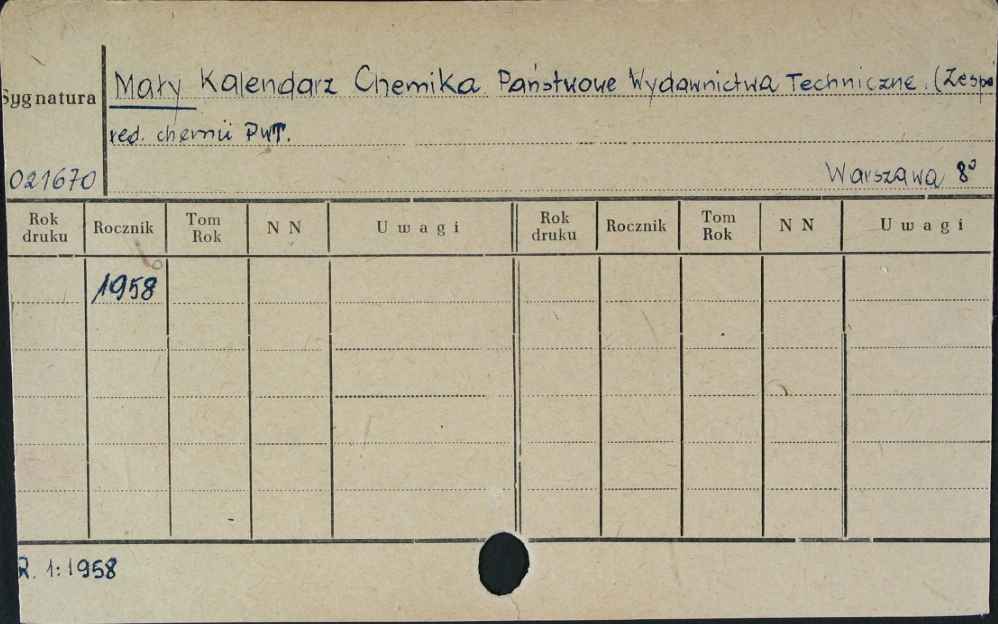 Sygnatura
Mały Kalendarz Chemika. Państwowe Wydawnictwa Techniczne. (Zespó
red. chemii PWT.
021670
Warszawa 8°
Rok druku Rocznik Tom Rok N N Uwagi Rok druku Rocznik Tom Rok N N Uwagi
1958
R. 1:1958